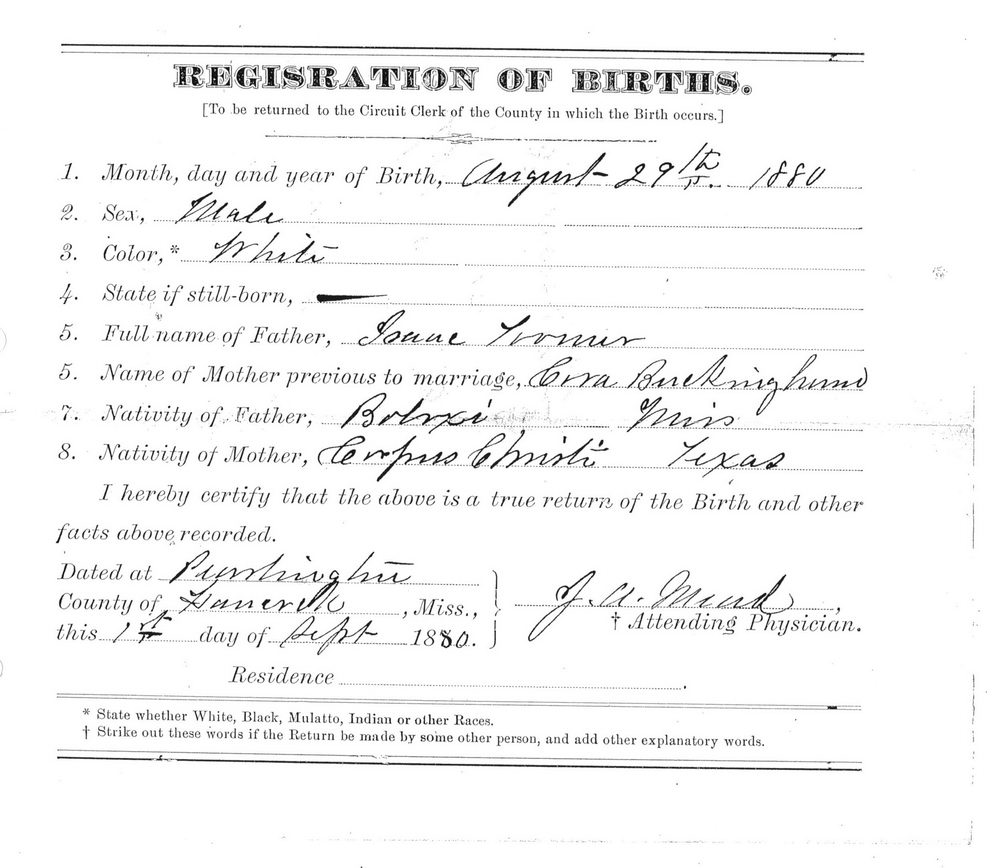 REGISRATION OF BIRTHS.
[To be returned to the Circuit Clerk of the County in which the Birth occurs.]
1. Month, day and year of Birth, August 29th 1880
2. Sex, Male
3. Color,* White
4. State if still-born, —
5. Full name of Father, Isaac Toomer
5. Name of Mother previous to marriage, Cora Buckingham
7. Nativity of Father, Boloxi, Miss
8. Nativity of Mother, Corpus Christi Texas
I hereby certify that the above is a true return of the Birth and other
facts above recorded.
Dated at
County of Hancock, Miss.,
this 1st day of Sept 1880.
J. A. Mead,
† Attending Physician.
Residence
* State whether White, Black, Mulatto, Indian or other Races.
† Strike out these words if the Return be made by some other person, and add other explanatory words.